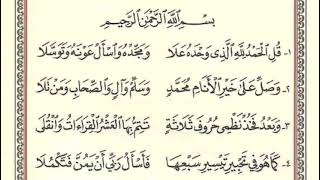 بِسْمِ اللَّهِ الرَّحْمَٰنِ الرَّحِيمِ
١- قُلِ الْحَمْدُ لِلَّهِ الَّذِي وَحْدَهُ عَلَا وَمَجِّدْهُ وَاسْأَلْ عَوْنَهُ وَتَوَسَّلَا
٢- وَصَلِّ عَلَى خَيْرِ الْأَنَامِ مُحَمَّدٍ وَسَلِّمْ وَآلٍ وَالصِّحَابِ وَمَنْ تَلَا
٣- وَبَعْدُ فَخُذْ نَظْمِي حُرُوفَ ثَلَاثَةٍ تَتِمُّ بِهَا الْعَشْرُ الْقِرَاءَاتُ وَانْقُلَا
٤- كَمَا هُوَ فِي تَحْبِيرِ تَيْسِيرِ سَبْعِهَا فَأَسْأَلُ رَبِّي أَنْ يَمُنَّ فَتَكْمُلَا